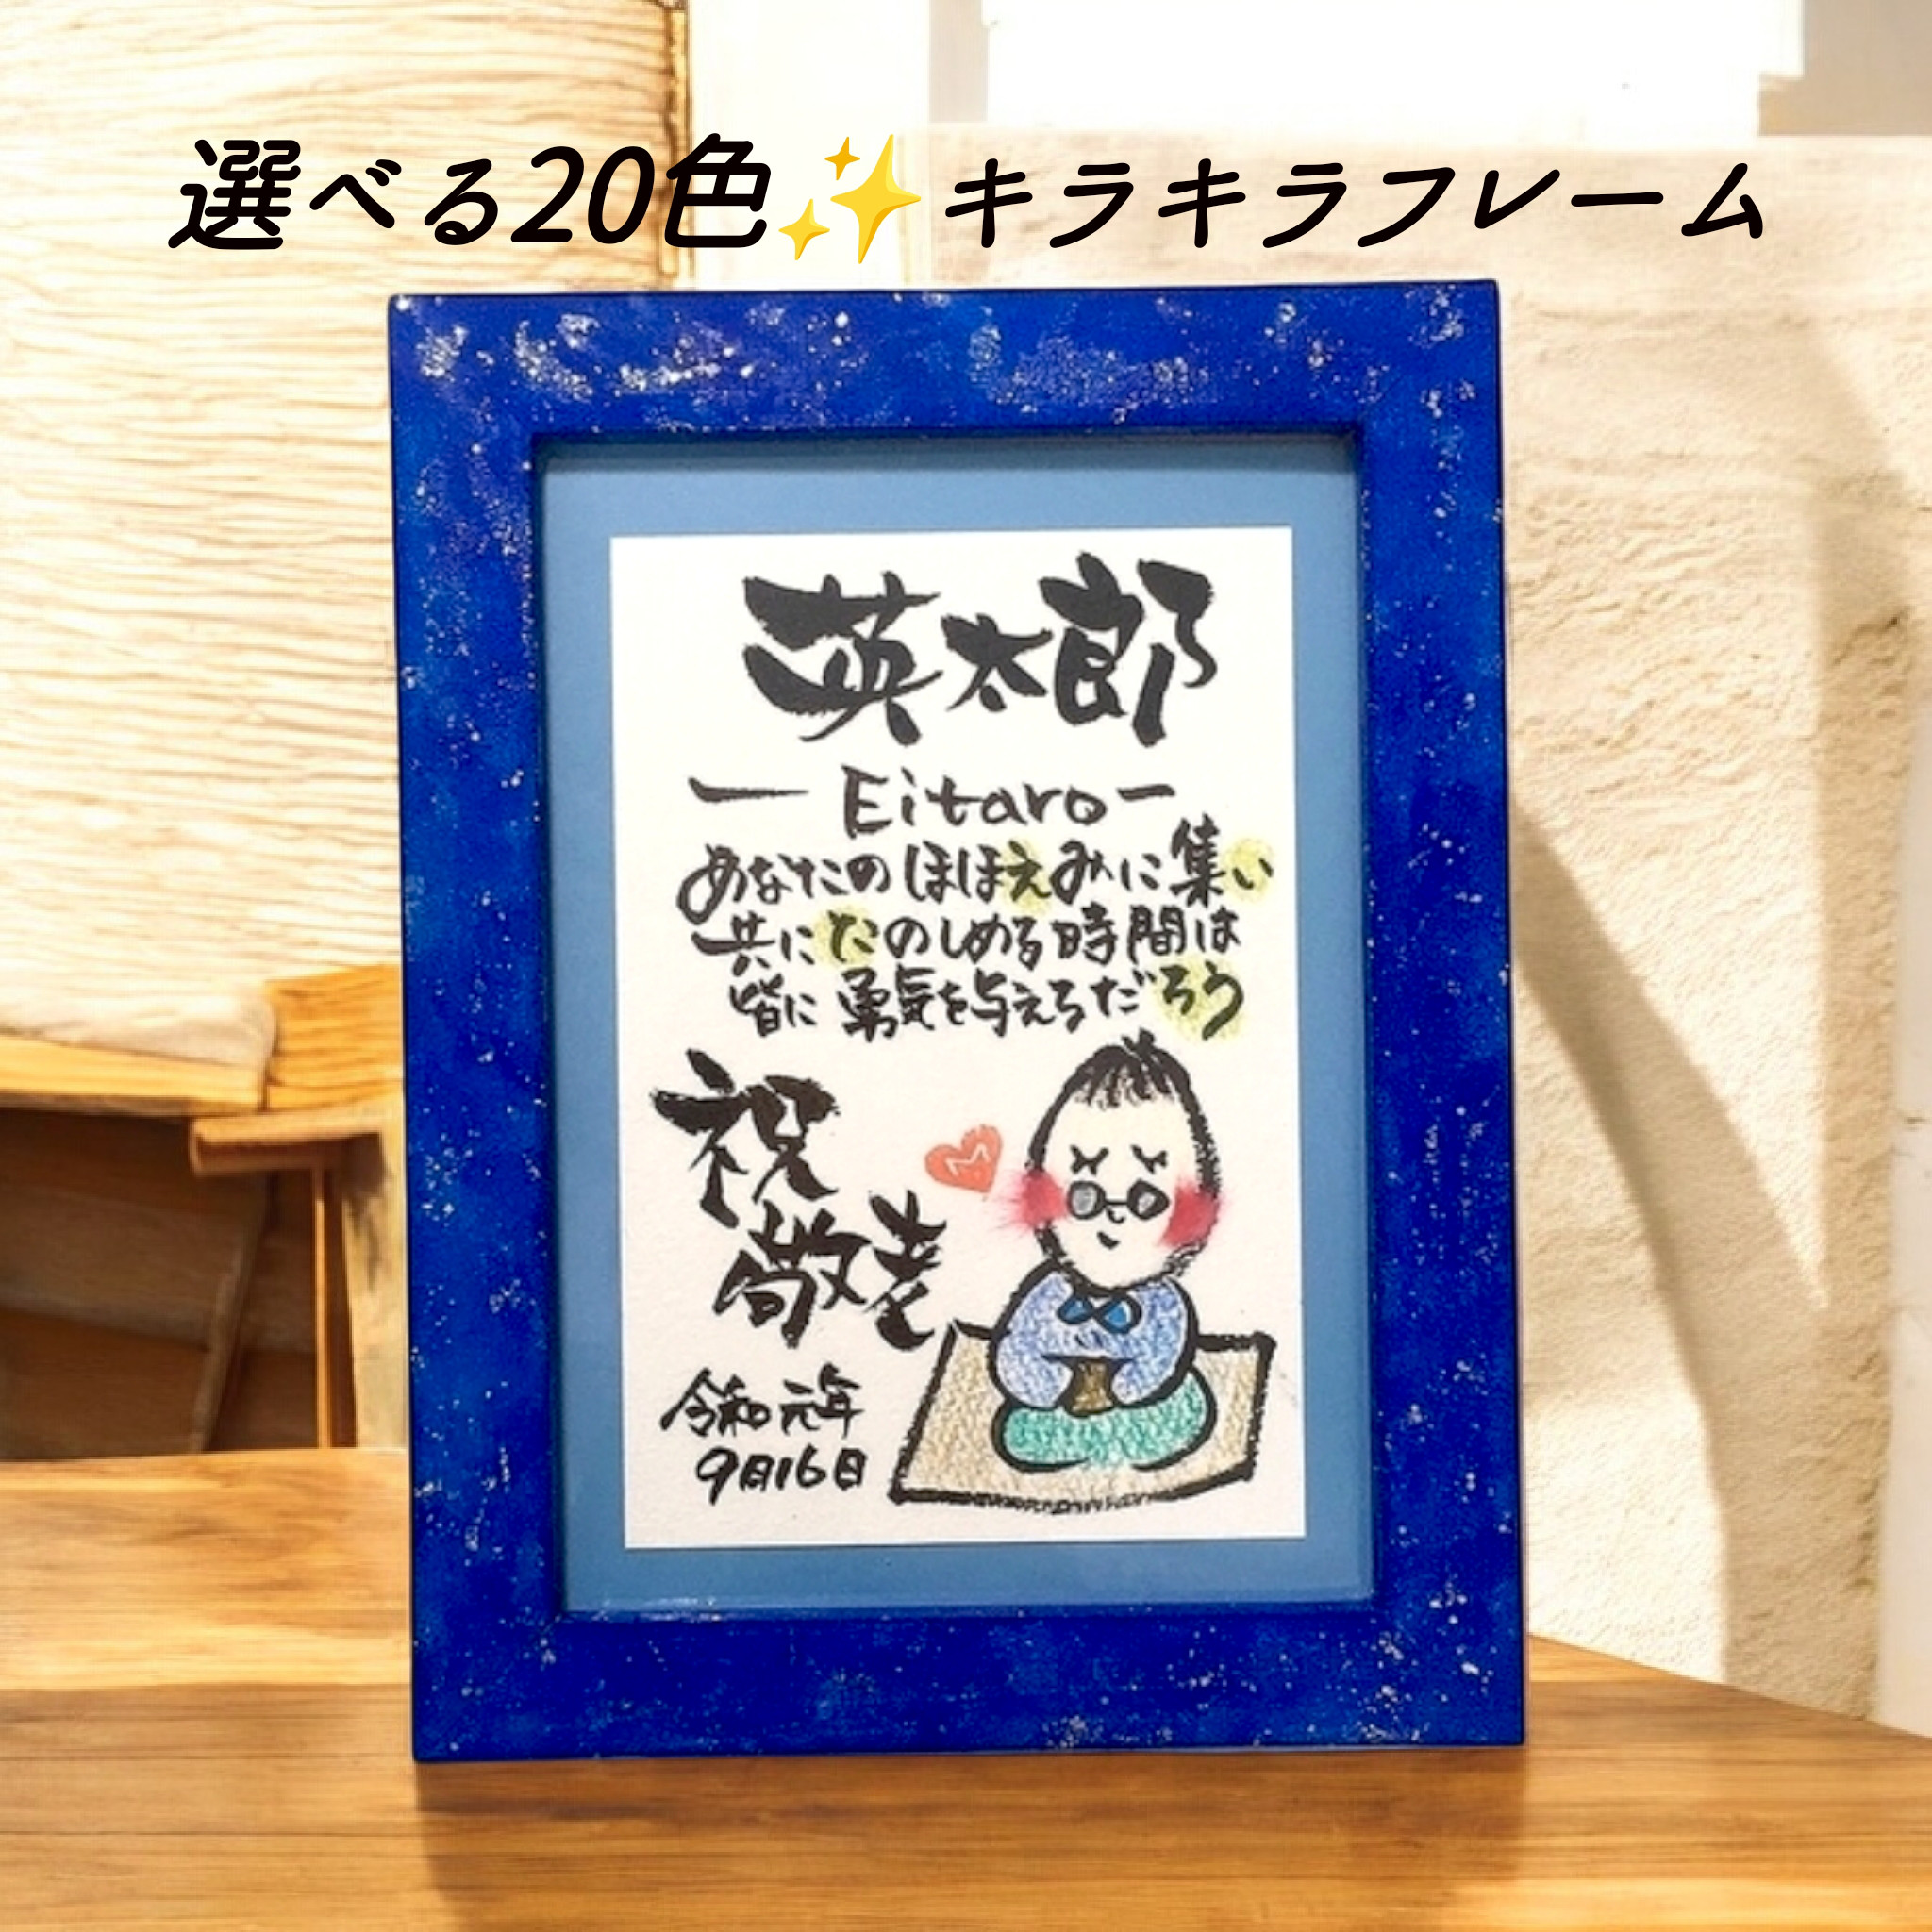 選べる20色✨キラキラフレーム
英太郎
ー Eitaro ー
あなたのほほえみに集い
共にたのしめる時間は
皆に勇気を与えるだろう
祝
敬老
令和元年
9月16日